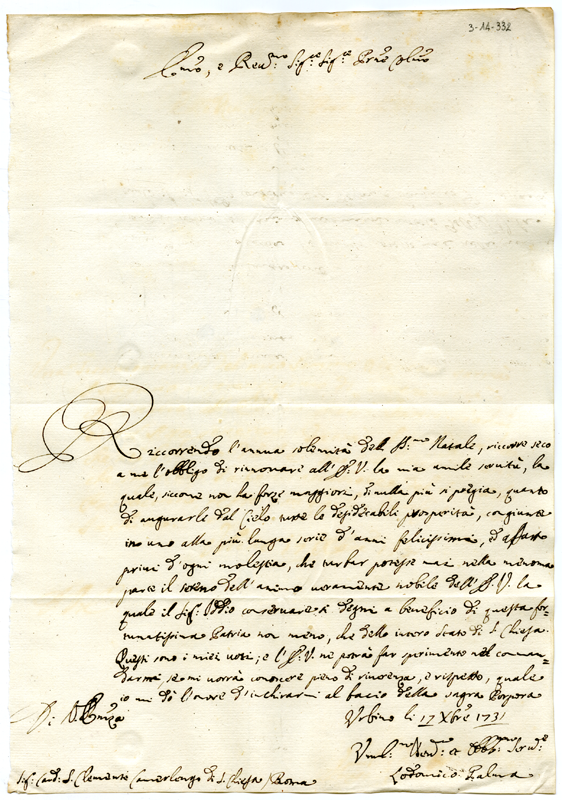 3-14-332
Em̃o, e Reu.mo Sig.re Sig.re Prñe Col̃mo
Riccorrendo l'annua solennità del S.mo Natale, riccorre seco
a me l'obbligo di rinouare all'E.V. la mia umile seruitù, la
quale, siccome non ha forze maggiori, di nulla più si preggia, quanto
di augurarle dal Cielo tutte le desiderabili prosperità, congiunte
in uno alla più lunga serie d'anni felicissimi, ed affatto
priui d'ogni molestia, che turbar potesse mai nella menoma
parte il sereno dell'animo ueramente nobile dell'E.V. la
quale il Sig.e Iddio conseruare si degni a beneficio di questa for-
tunatissima Patria non meno, che dello intero Stato di S. Chiesa.
Questi sono i miei uoti; e l'E.V. ne potrà far sperimento nel coman-
darmi, se mi uorrà conoscere pieno di riuerenza, e rispetto, quale
io mi dò l'onore d'inchinarmi al bacio della sagra Porpora
Di V. Em̃za
Urbino li 17 Xbre 1731
Uml.mo Deu.mo et Obb.mo Seru.re
Sig.r Card. S. Clemente Camerlengo di S. Chiesa / Roma
Lodouico Palma